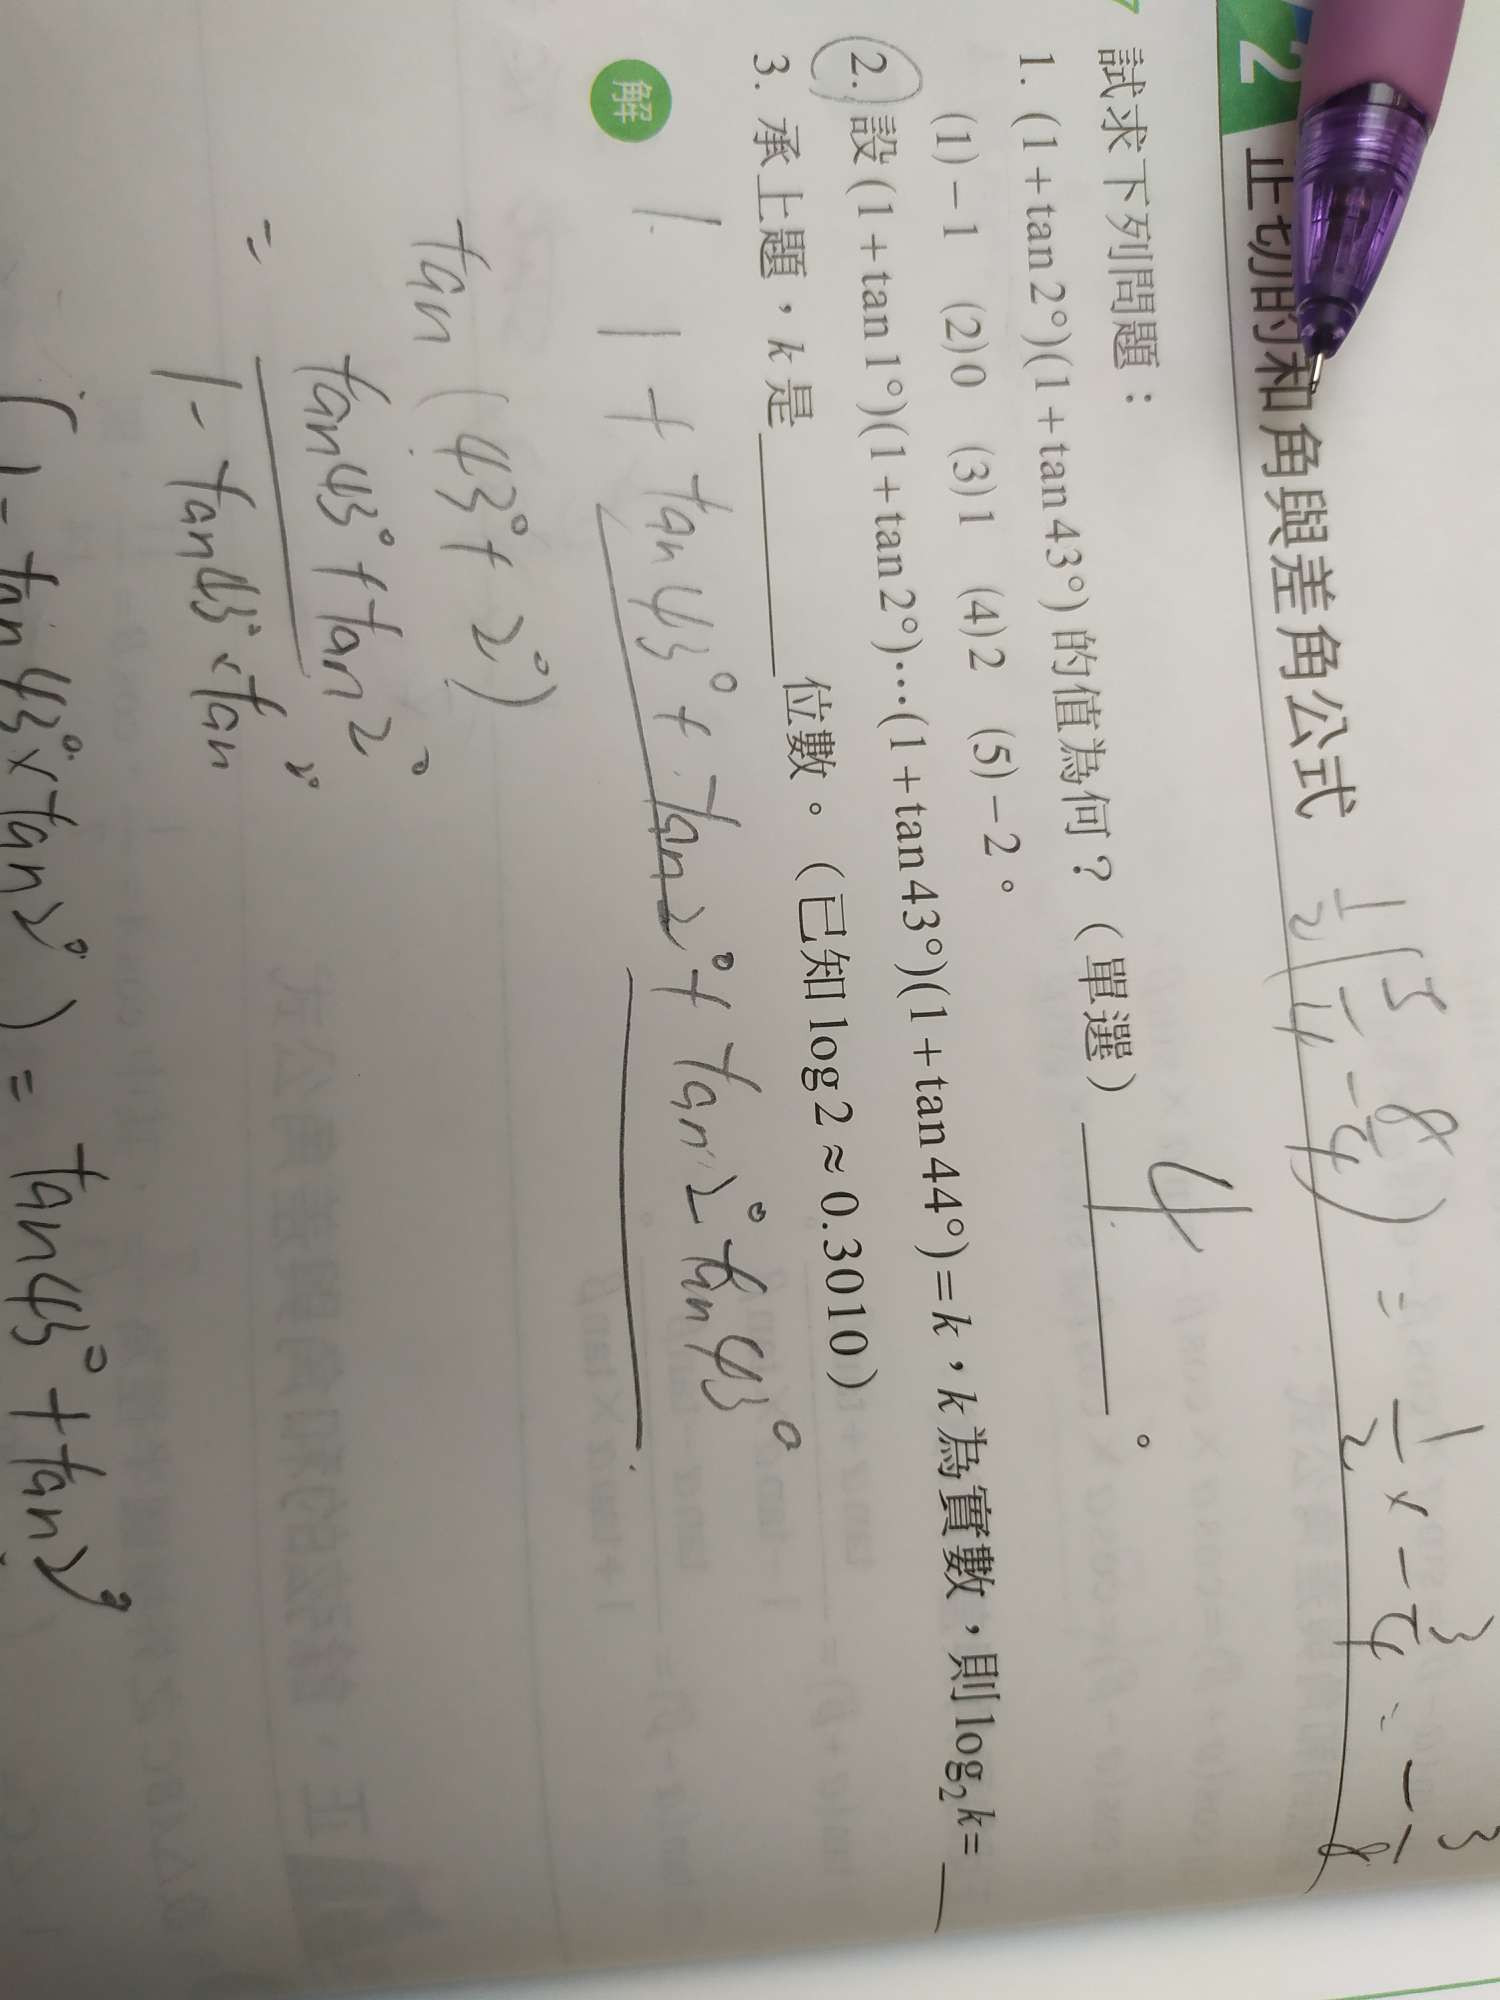 2 正切的和角與差角公式
1/2 (3/-4 - 8/4) = 1/2 × -3/4 = -3/8
試求下列問題：
1. (1+tan2°)(1+tan43°)的值為何？（單選）4。
(1)-1 (2)0 (3)1 (4)2 (5)-2。
2. 設(1+tan1°)(1+tan2°)⋯(1+tan43°)(1+tan44°)=k，k為實數，則log₂k=
3. 承上題，k是______位數。（已知log2≈0.3010）
解
1. 1 + tan43° + tan2° + tan2° tan43°
tan (43° + 2°)
= tan43° + tan2°
1 - tan43° × tan2°
(1 - tan43° × tan2°) = tan43° + tan2°